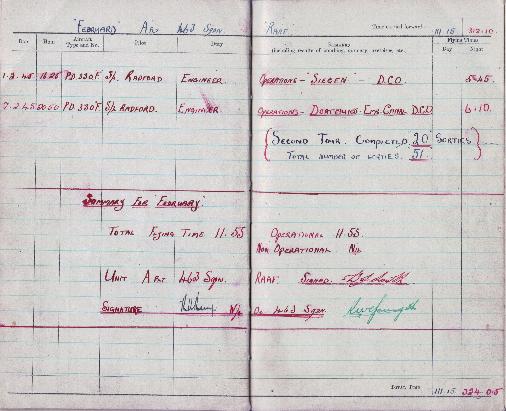 "FEBRUARY" A FLT 463 SQDN. "RAAF"
Time carried forward:— 111.15 312.10
Date Hour Aircraft Type and No. Pilot Duty REMARKS (including results of bombing, gunnery, exercises, etc.) Flying Times Day Night
1.2.45 1625 PD 330 F S/L RADFORD ENGINEER. OPERATIONS - "SIEGEN" D.C.O. 5.45
7.2.45 PD 330 F S/L RADFORD. ENGINEER OPERATIONS - CANAL D.C.O 6.10
(SECOND TOUR COMPLETED 20 SORTIES)
TOTAL NUMBER OF SORTIES. 51.
SUMMARY FOR "FEBRUARY"
TOTAL FLYING TIME 11.55 OPERATIONAL 11.55
NON OPERATIONAL NIL
UNIT A FLT 463 SQDN. RAAF. SIGNED.
SIGNATURE 463 SQDN.
Total Time 111.15 324.05